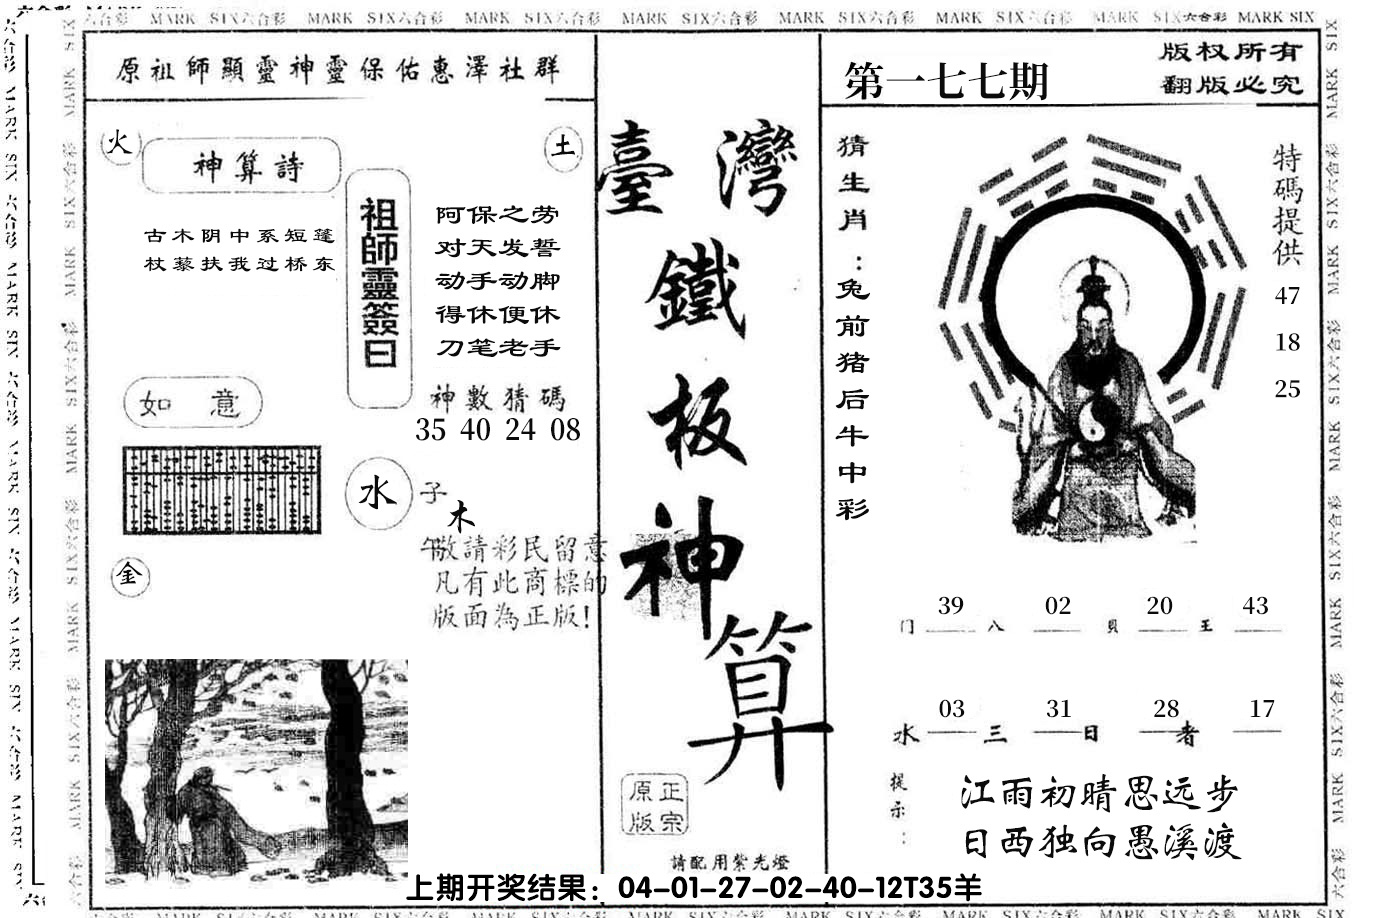 六合彩 MARK SIX六合彩 MARK SIX六合彩 MARK SIX六合彩 MARK SIX六合彩 MARK SIX六合彩 MARK SIX六合彩 MARK SIX六合彩 MARK SIX
原祖師顯靈神靈保佑惠澤社群
火
神算詩
土
古木阴中系短蓬
杖藜扶我过桥东
祖師靈簽曰
阿保之劳
对天发誓
动手动脚
得休便休
刀笔老手
如意
神數猜碼
35 40 24 08
水
子
木
午
金
敬請彩民留意
凡有此商標的
版面為正版!
臺灣
鐵
板
神
算
正宗
原版
請配用紫光燈
第一七七期
版权所有
翻版必究
猜生肖:兔前猪后牛中彩
特碼提供
47
18
25
39 02 20 43
门 八 貝 王
03 31 28 17
水 三 日 者
提示:
江雨初晴思远步
日西独向愚溪渡
上期开奖结果：04-01-27-02-40-12T35羊